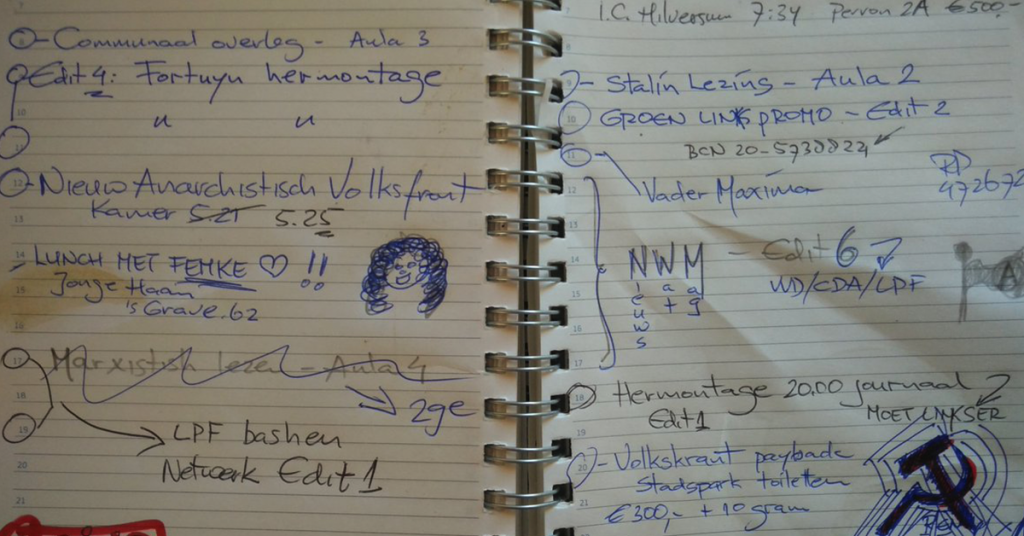 Communaal overleg - Aula 3
Edit 4: Fortuyn hermontage
" "
Nieuw Anarchistisch Volksfront
Kamer 5.21 5.25
LUNCH MET FEMKE ♡ !!
Jonge Haan
's Grave. 62
Marxistisch lezen - Aula 4
2ge
LPF bashen
Netwerk Edit 1
I.C. Hilversum 7:34 Perron 2A €500,-
Stalin Lezing - Aula 2
GROEN LINKS PROMO - Edit 2
BCN 20-5738824
Vader Maxima
RD
472672
NWM - Edit 6
Nieuws
Wat
Mag
VVD/CDA/LPF
A
Hermontage 20.00 journaal
Edit 1
MOET LINKSER
Volkskrant payback
Stadspark toiletten
€300,- + 10 gram